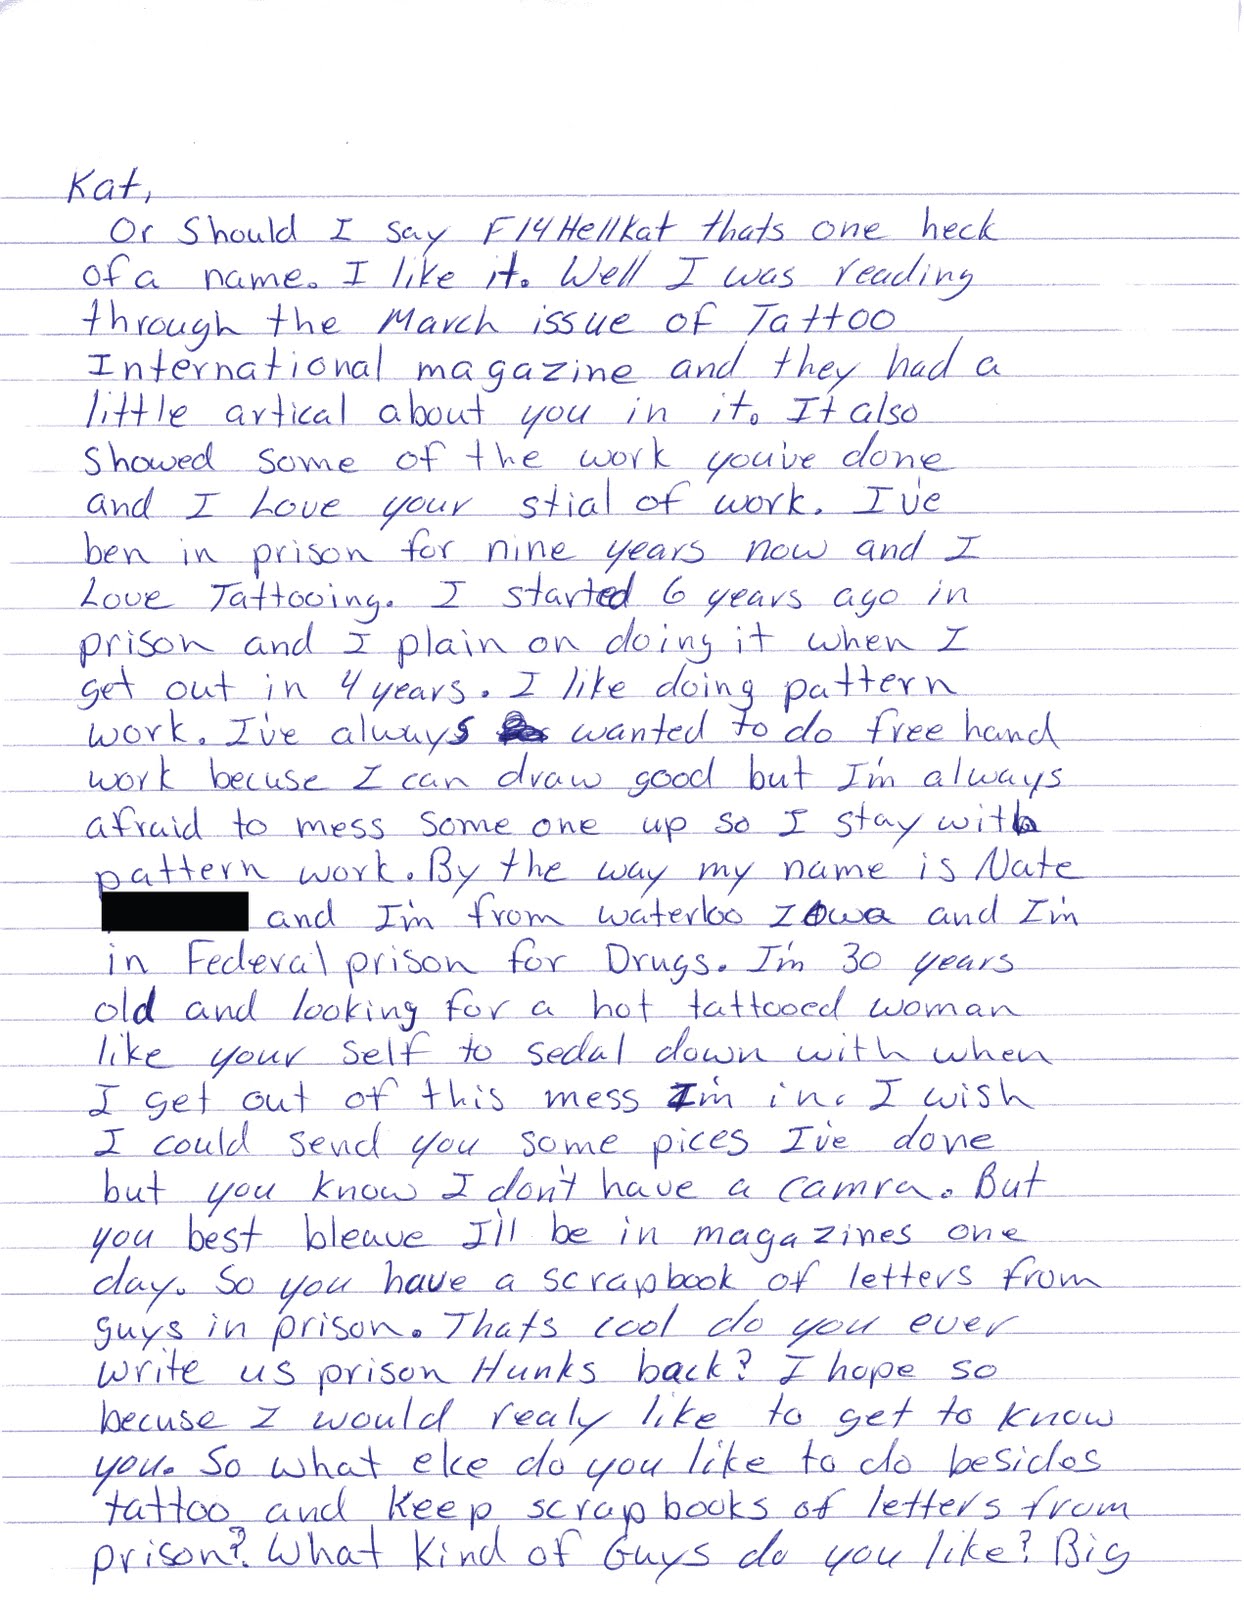 Kat,
Or Should I say F14Hellkat thats one heck
of a name. I like it. Well I was reading
through the March issue of Tattoo
International magazine and they had a
little artical about you in it. It also
Showed some of the work youive done
and I Love your stial of work. I've
ben in prison for nine years now and I
Love Tattooing. I started 6 years ago in
prison and I plain on doing it when I
get out in 4 years. I like doing pattern
work. I've always wanted to do free hand
work becuse I can draw good but I'm always
afraid to mess some one up so I stay with
pattern work. By the way my name is Nate
and I'm from waterloo Iowa and I'm
in Federal prison for Drugs. I'm 30 years
old and looking for a hot tattooed woman
like your self to sedal down with when
I get out of this mess I'm in. I wish
I could send you some pices I've done
but you know I don't have a camra. But
you best bleave I'll be in magazines one
day. So you have a scrapbook of letters from
guys in prison. Thats cool do you ever
write us prison Hunks back? I hope so
becuse I would realy like to get to know
you. So what elce do you like to do besides
tattoo and keep scrapbooks of letters from
prison? What kind of Guys do you like? Big